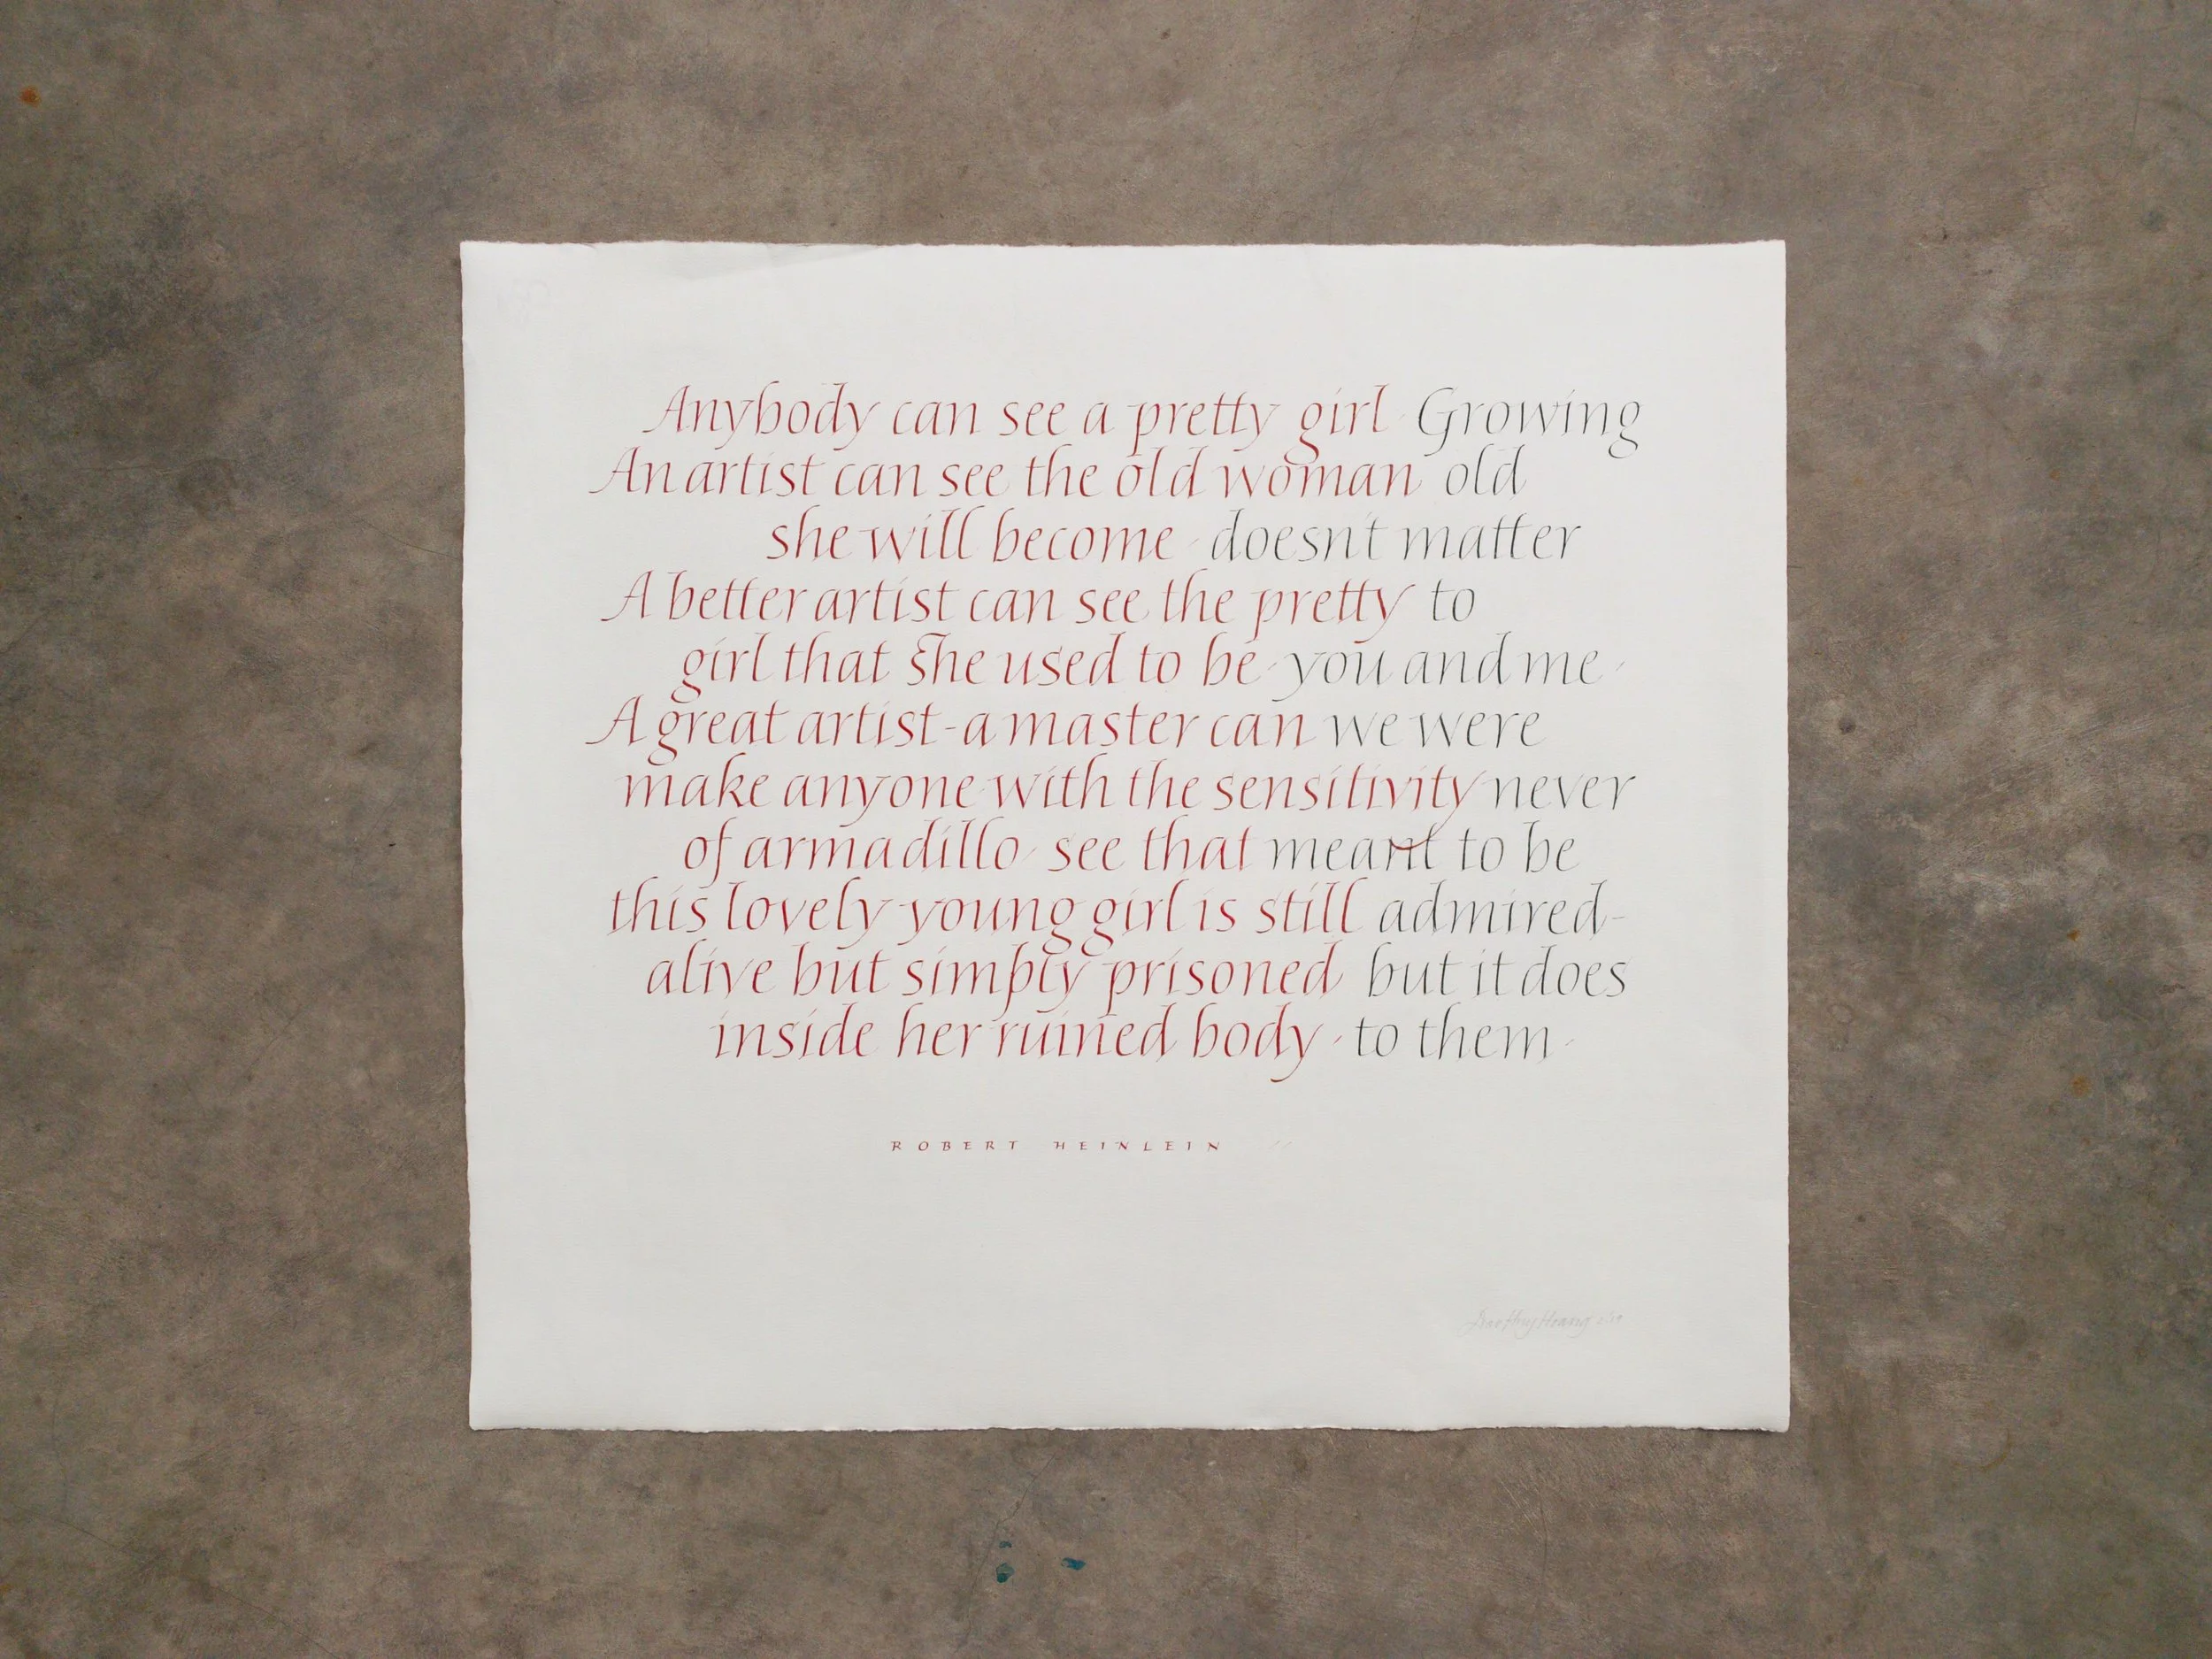 Anybody can see a pretty girl Growing
An artist can see the old woman old
she will become doesn't matter
A better artist can see the pretty to
girl that she used to be you and me
A great artist-a master can we were
make anyone with the sensitivity never
of armadillo see that meant to be
this lovely young girl is still admired-
alive but simply prisoned but it does
inside her ruined body to them
ROBERT HEINLEIN